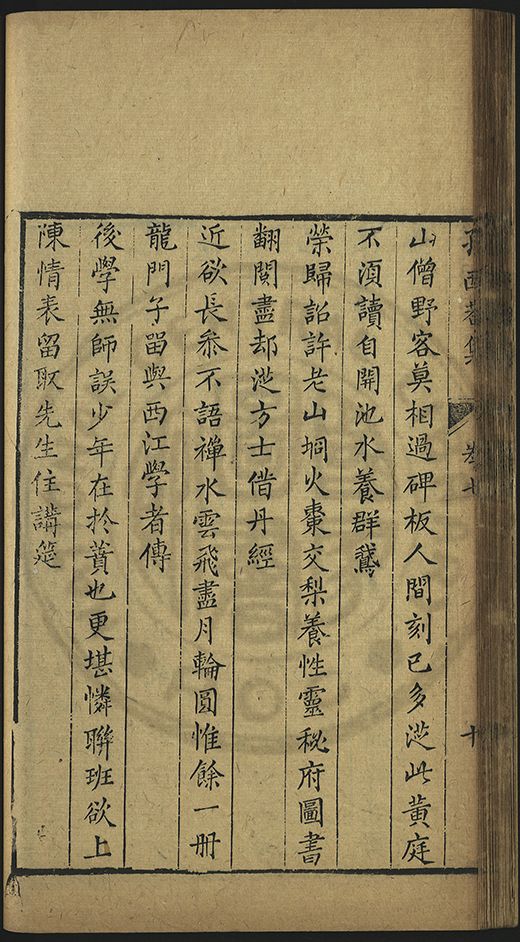 孫西菴集 卷七 十
山僧野客莫相過碑板人間刻已多從此黃庭
不須讀自開池水養群鵞
榮歸詔許老山坰火棗交梨養性靈秘府圖書
翻閱盡却從方士借丹經
近欲長叅不語禪水雲飛盡月輪圓惟餘一冊
龍門子畱與西江學者傳
後學無師誤少年在於蕢也更堪憐聯班欲上
陳情表留取先生住講筵